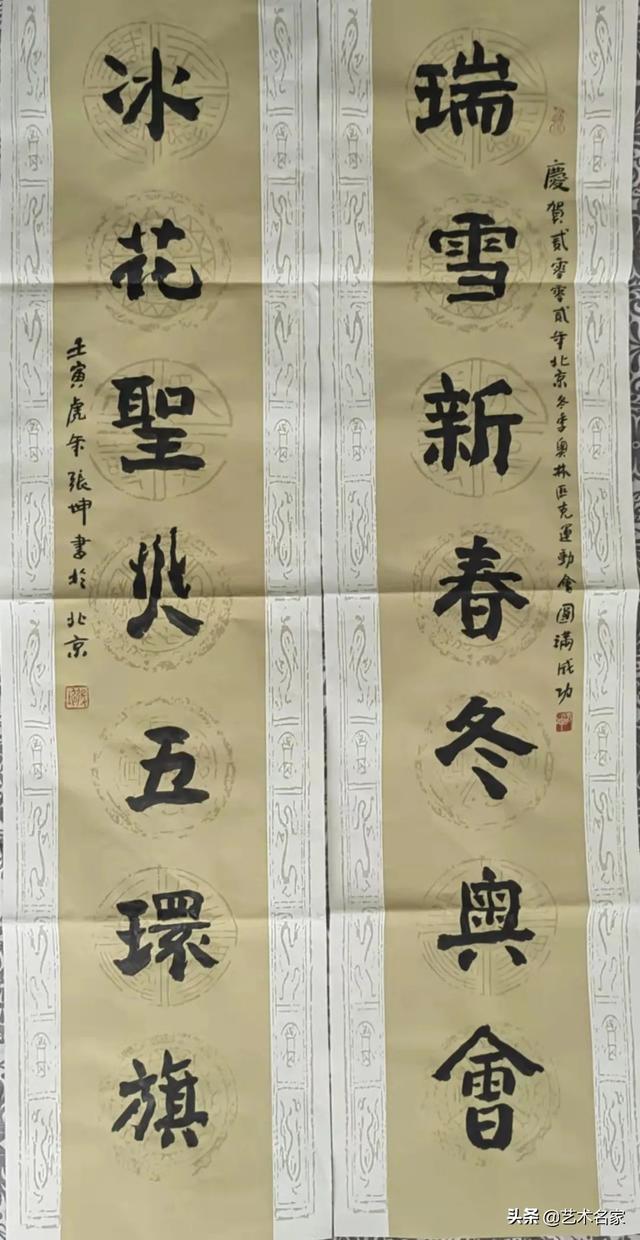 慶賀貳零零貳年北京冬季奧林匹克運動會圓滿成功
瑞雪新春冬奧會
冰花聖五環旗
壬寅虎年張坤書於北京
头条 @艺术名家